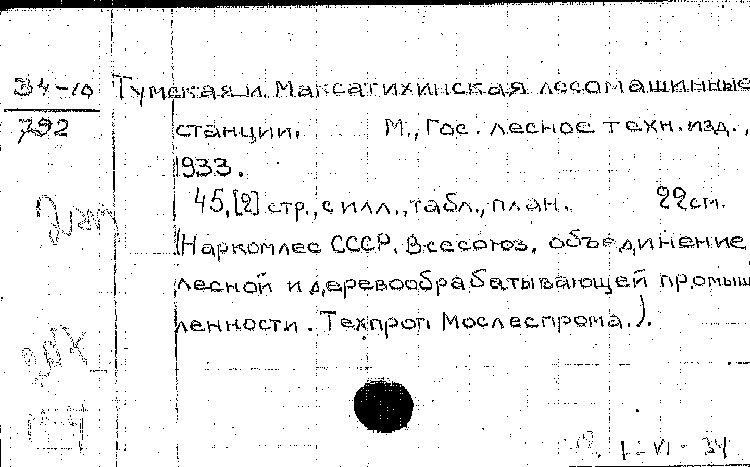 34-10 Тумская и Максатихинская лесомашинные
792 станции. М., Гос. лесное техн. изд.,
1933.
45, [2] стр., с илл., табл., план. 22 см.
(Наркомлес СССР. Всесоюз. объединение
лесной и деревообрабатывающей промыш
ленности. Техпроп. Мослеспрома.).
1-VI-34